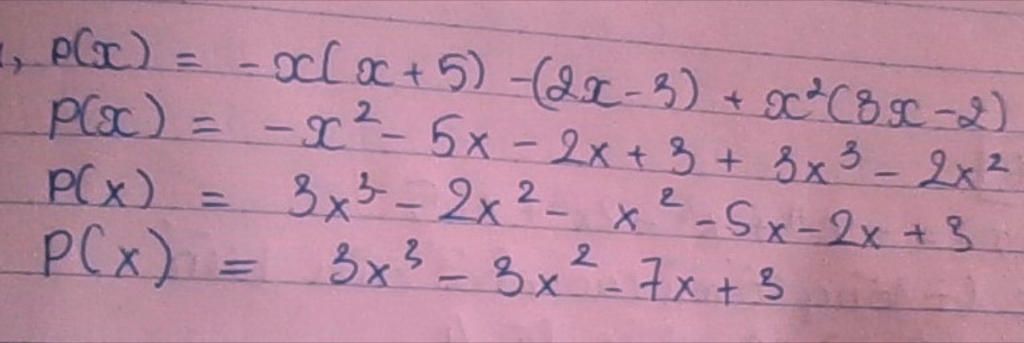 1, P(x) = -x(x+5) -(2x-3) + x²(3x-2)
P(x) = -x² - 5x - 2x + 3 + 3x³ - 2x²
P(x) = 3x³ - 2x² - x² - 5x - 2x + 3
P(x) = 3x³ - 3x² - 7x + 3